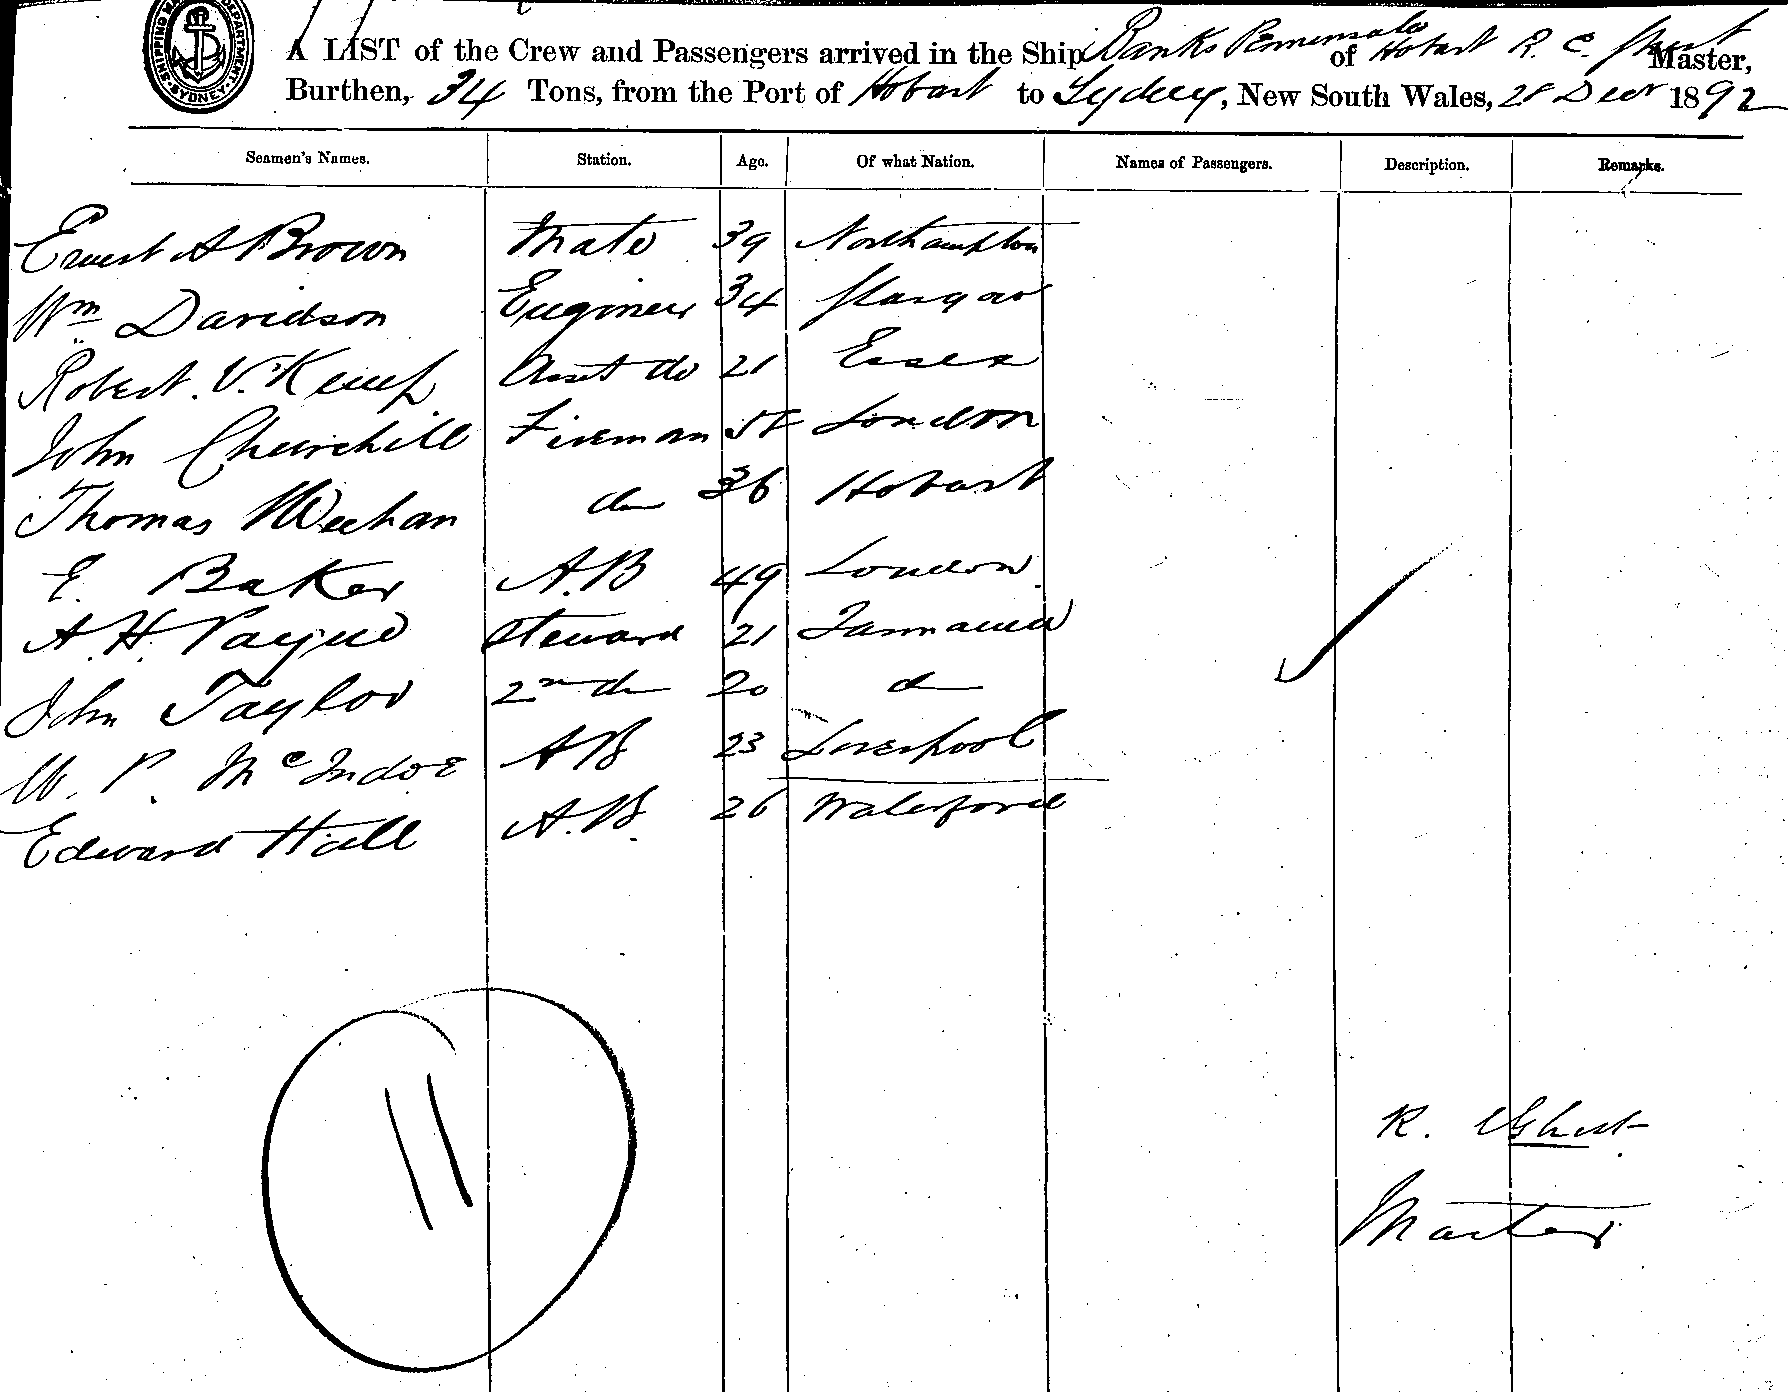 SHIPPING MA DEPARTMENT SYDNEY
A LIST of the Crew and Passengers arrived in the Ship Banks Peninsula of Hobart R. C. Ghest Master,
Burthen, 34 Tons, from the Port of Hobart to Sydney, New South Wales, 28 Decr 1892
Seamen's Names. Station. Age. Of what Nation. Names of Passengers. Description. Remarks.
Ernest A Brown Mate 39 Northampton
Wm Davidson Engineer 34 Glasgow
Robert. V. Kemp Asst do 21 Essex
John Churchill Fireman London
Thomas Meehan do 36 Hobart
E. Baker A.B 49 London
A. H. Payne Steward 21 Tasmania
John Taylor 2n do 20 do
W. P. McIndoe AB 23 Liverpool
Edward Hall A.B. 26 Waterford
11
R. C Ghest
Master